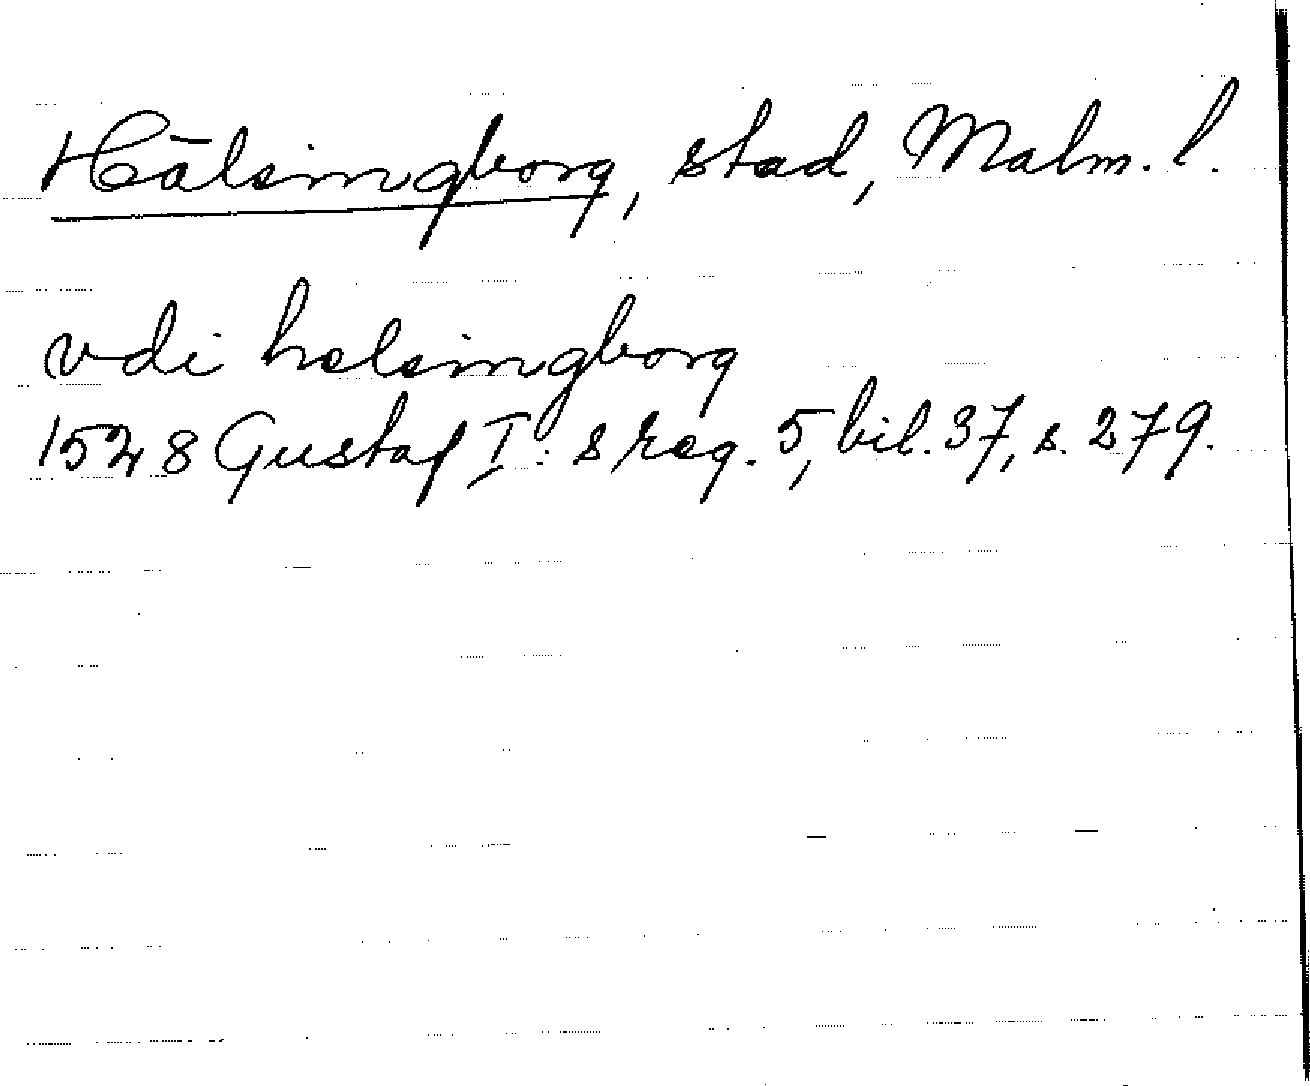 Hälsingborg, stad, Malm. l.
vdi helsingborg
1528 Gustaf I:s reg. 5, bil. 37, s. 279.